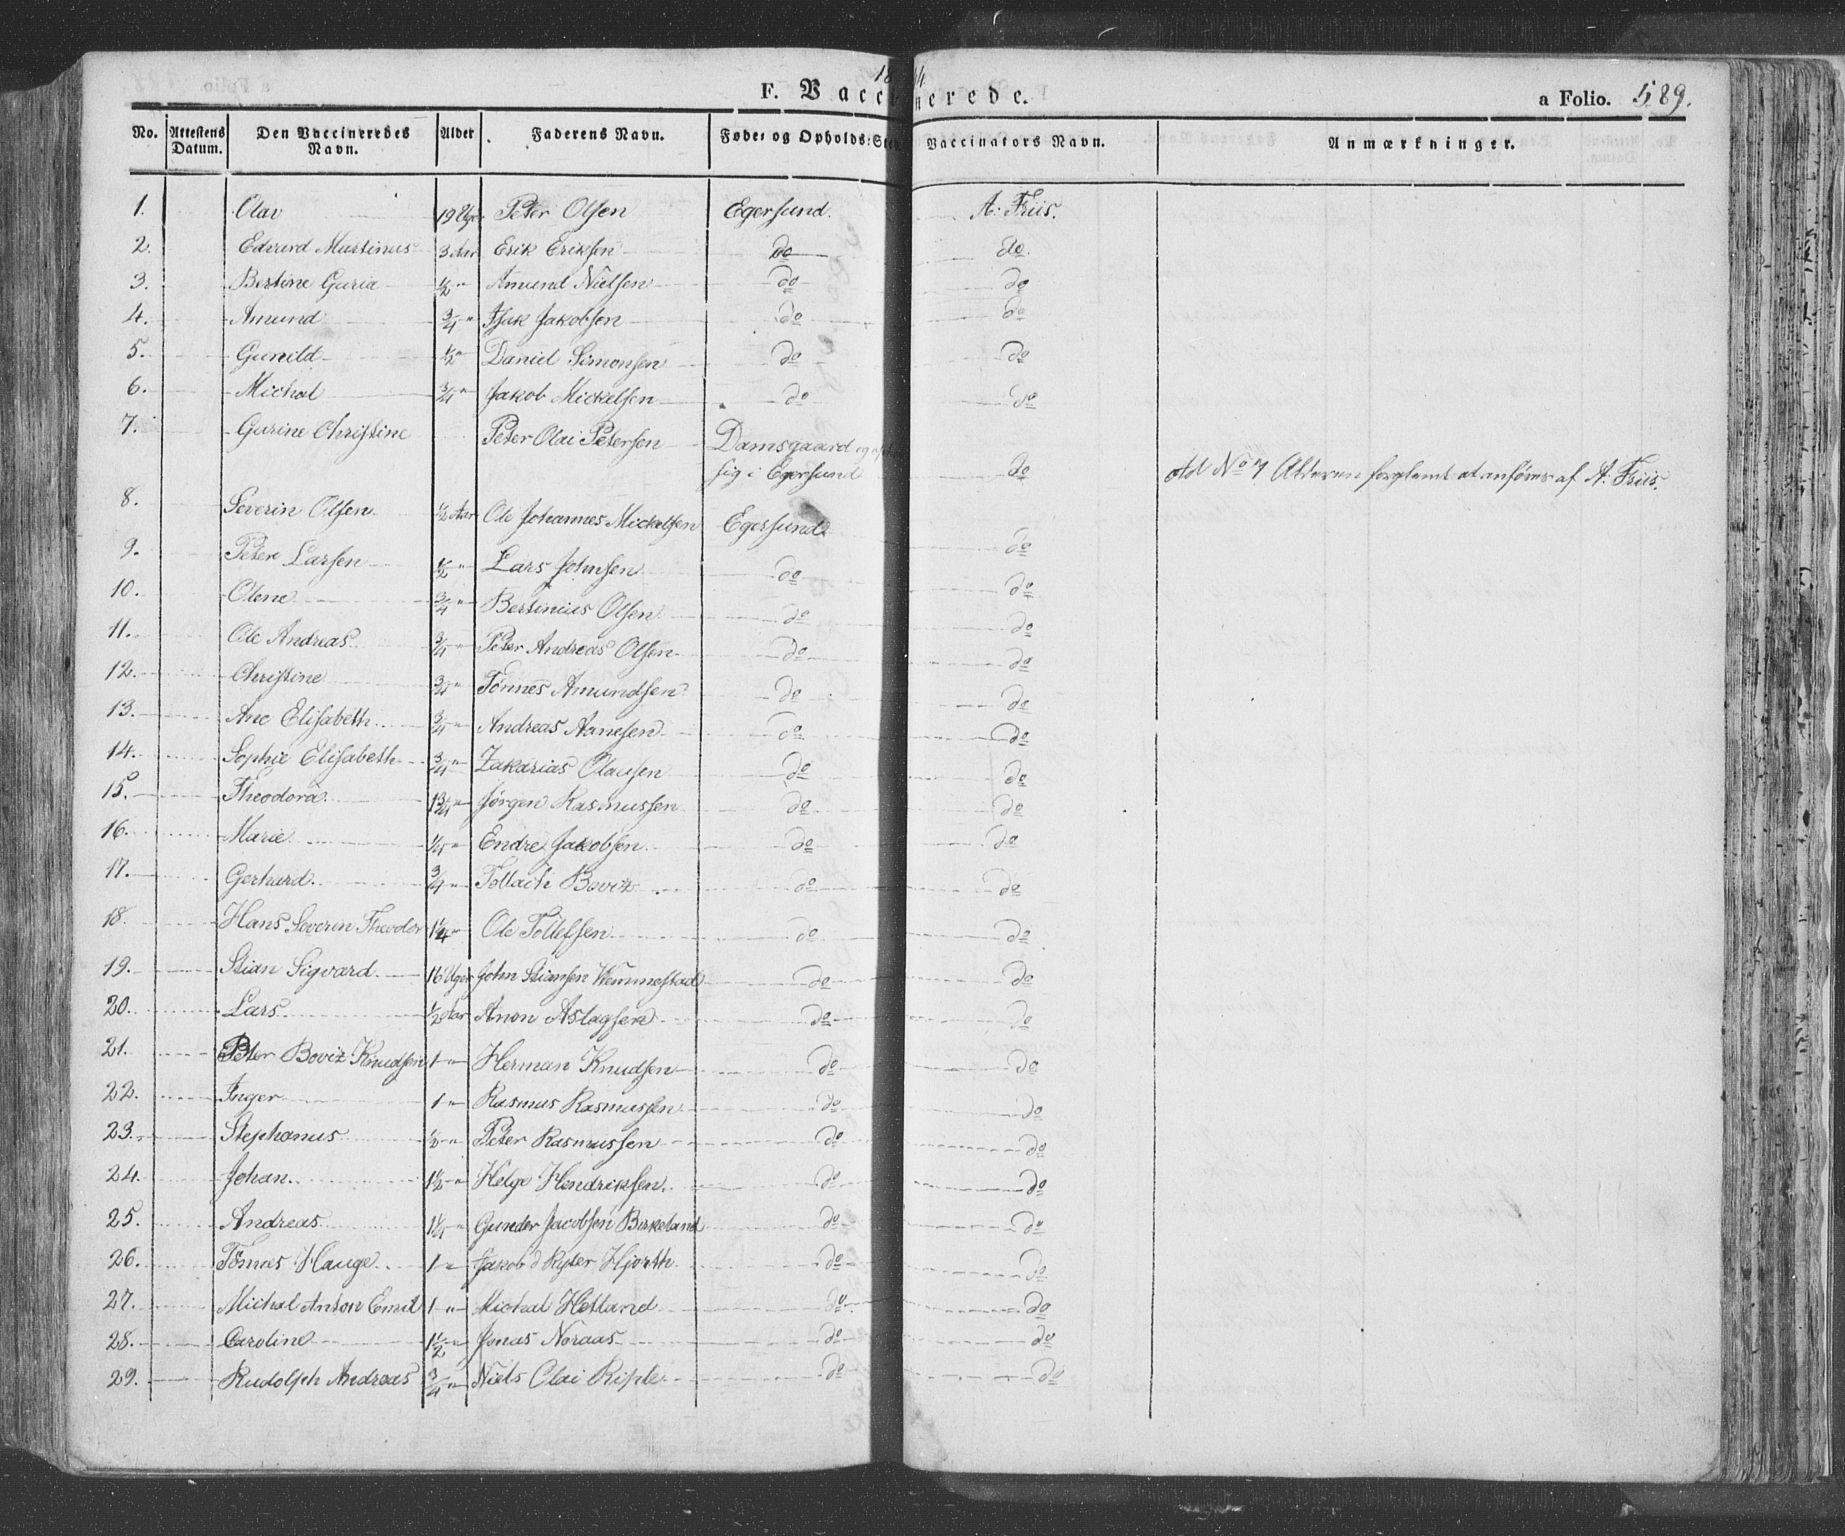 F. Vaccinerede.
a Folio. 589.
No. Attestens Datum. Den Vaccineredes Navn. Alder Faderens Navn. Føde- og Opholds-Sted Vaccinators Navn. Anmærkninger.
1. Olai 19 Uger Peter Olsen Egersund. A. Friis.
2. Edvard Martinus 3 Aar Erik Eriksen do do
3. Bertine Guria 1/2 " Amund Nielsen do do
4. Amund 3/4 " Isak Jakobsen do do
5. Gunild 1/2 " Daniel Simonsen do do
6. Michal 3/4 " Jakob Mickelsen do do
7. Gurine Christine Peter Olai Petersen Damsgaard
sig i Egersund do Ad No 7 Alderen forglemt at anføres af A. Friis.
8. Severin Olsen 1/2 Aar Ole Johannes Mickelsen Egersund do
9. Peter Larsen 1/2 " Lars Johnsen do do
10. Olene 3/4 " Bertinius Olsen do do
11. Ole Andreas 3/4 " Peter Andreas Olsen do do
12. Christine 3/4 " Tønnes Amundsen do do
13. Ane Elisabeth 3/4 " Andreas Aanesen do do
14. Sophie Elisabeth 3/4 " Zakarias Olausen do do
15. Theodora 1 3/4 " Jørgen Rasmussen do do
16. Marie 1/4 " Endre Jakobsen do do
17. Gerhard 3/4 " Tollach Boviz do do
18. Hans Severin Theodor 1 1/4 " Ole Tollefsen do do
19. Stian Sigvard 16 Uger John Stiansen Wemmestad do do
20. Lars 1/2 Aar Anon Aslagsen do do
21. Peter Boviz Knudsen 1 " Herman Knudsen do do
22. Inger 1 " Rasmus Rasmussen do do
23. Stephanus 1/2 " Peter Rasmussen do do
24. Johan 1 1/2 " Helge Hendriksen do do
25. Andreas 1 1/4 " Gunder Jacobsen Birkeland do do
26. Tønnes Hauge 1 " Jakob Hjorth do do
27. Michal Anton Emil 1 " Michal Hetland do do
28. Caroline 1 1/2 " Jonas Noraas do do
29. Rudolph Andreas 3/4 " Niels Olai Riple do do